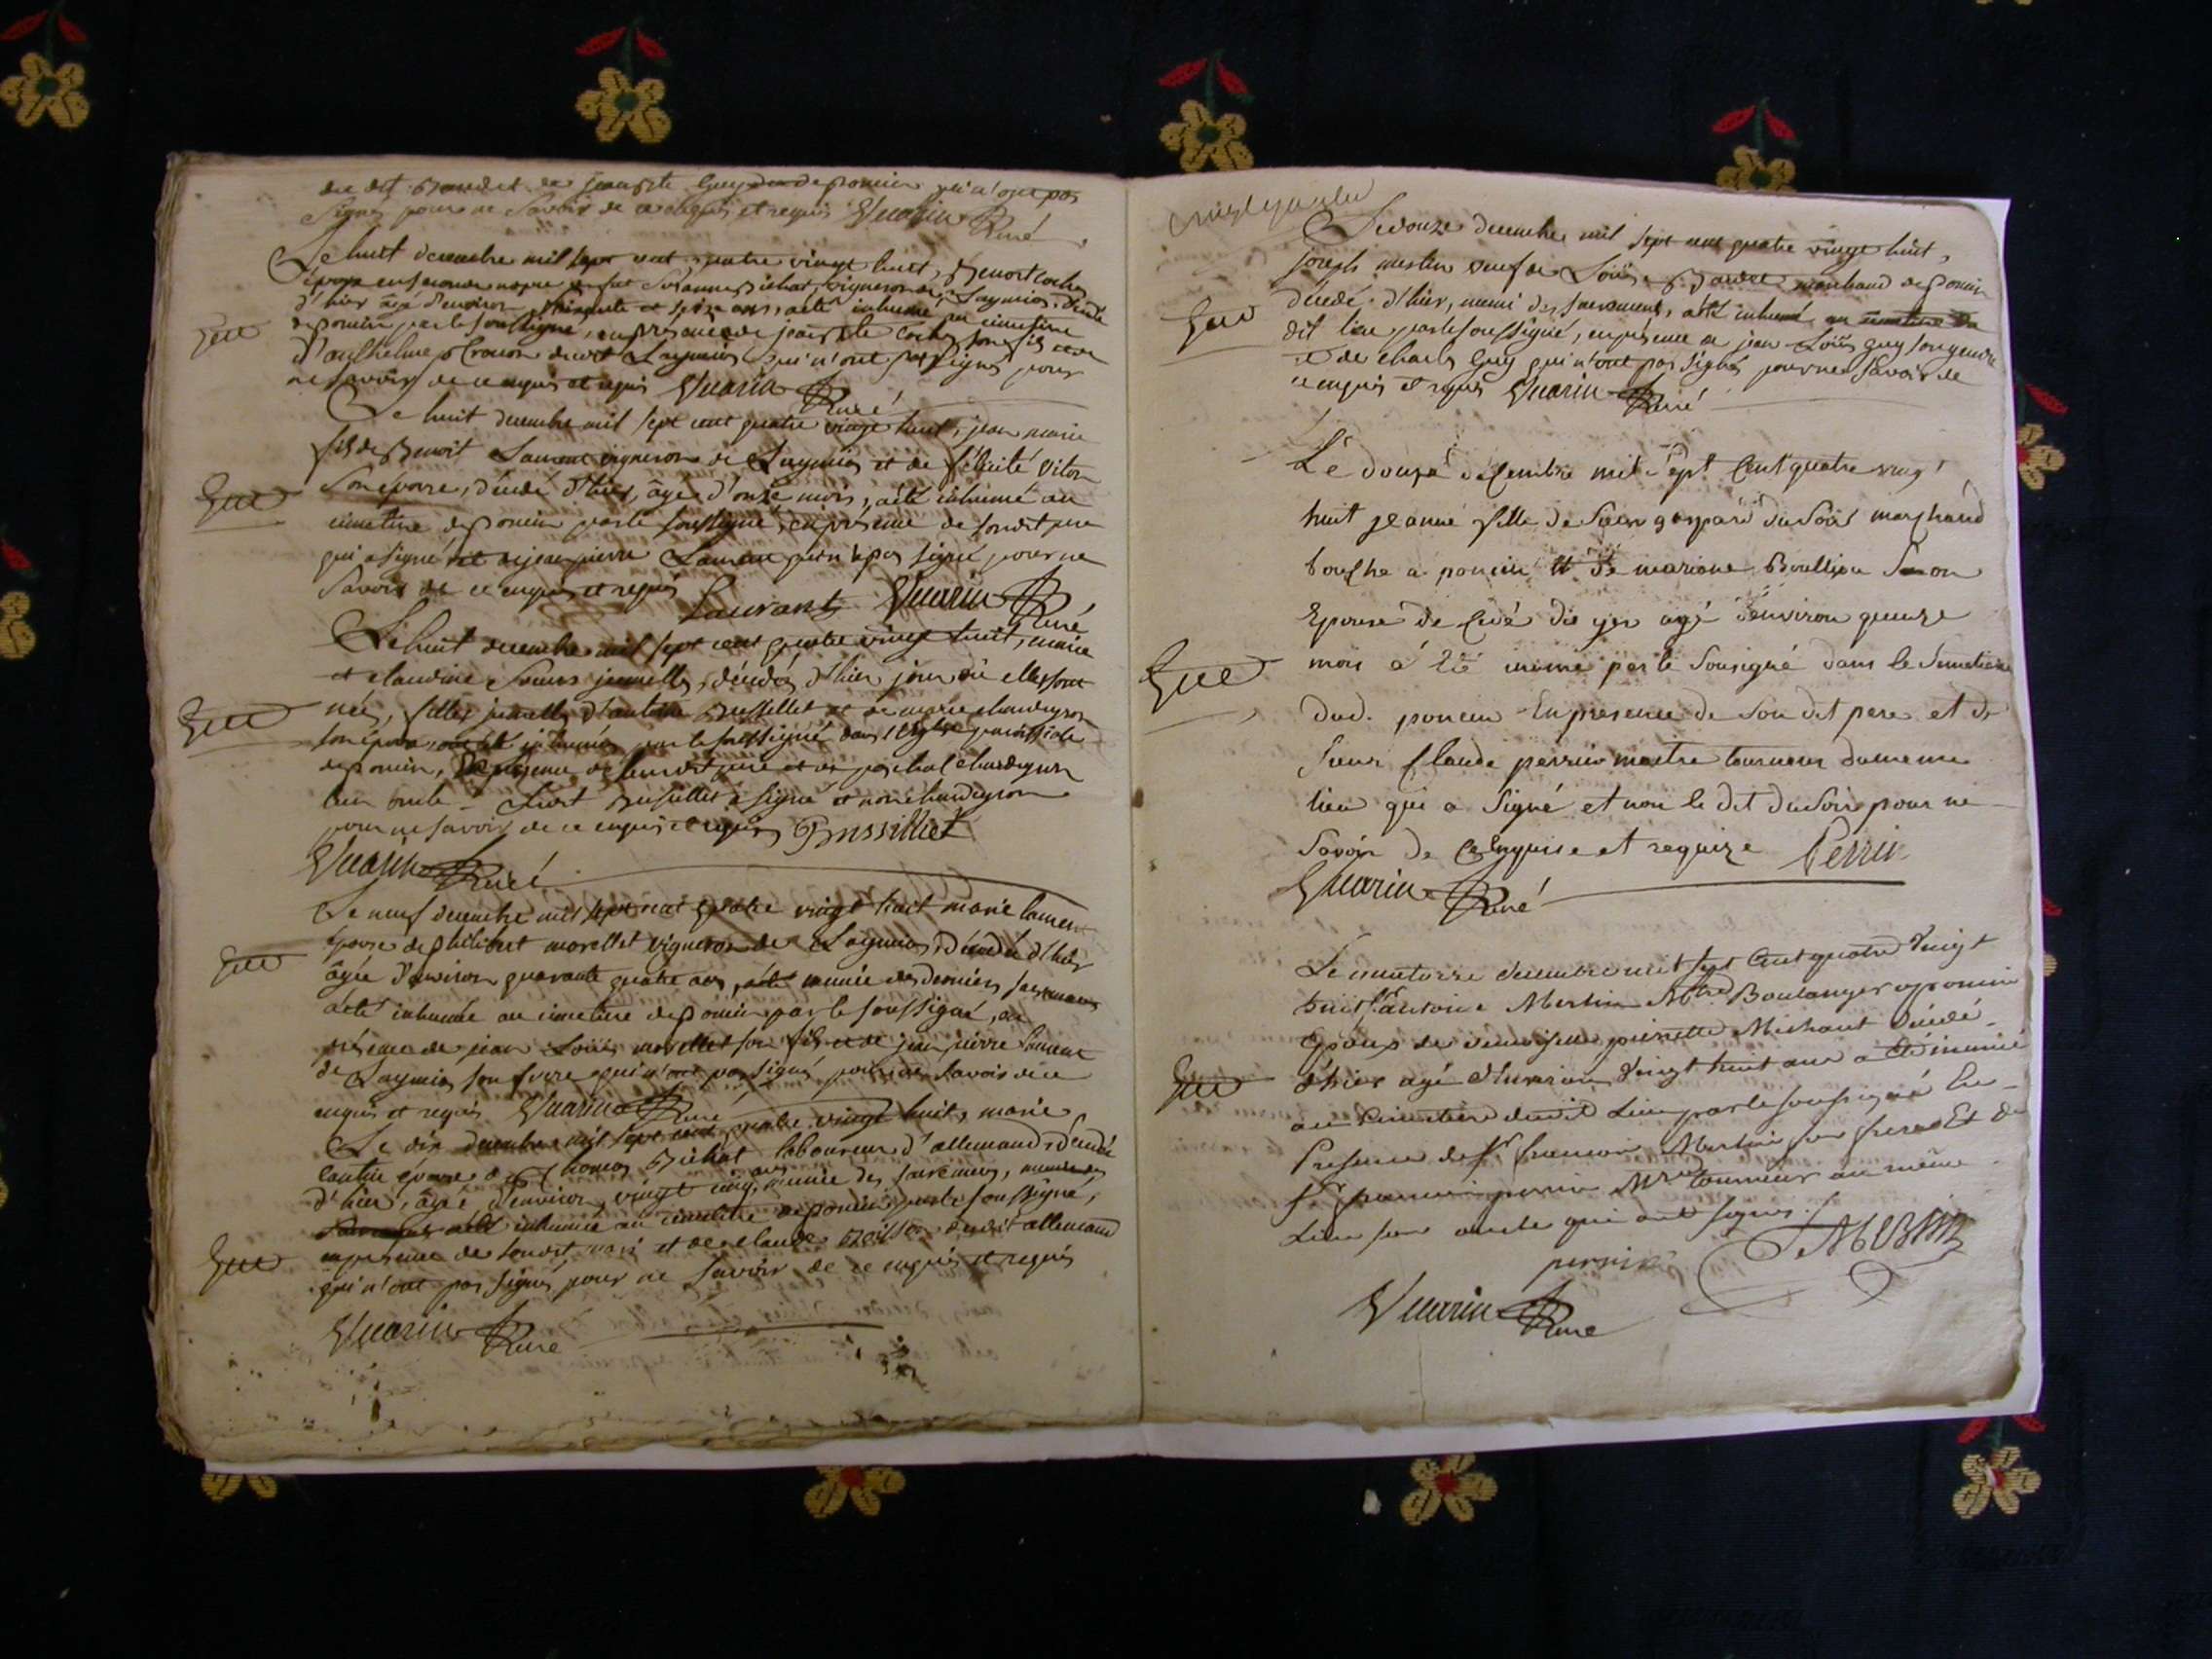 dud. Baudet de jean Bte Guy de poncin qui n'ont pas
signés pour ne savoir de ce enquis et requis Vuarin Curé
Le huit decembre mil sept cent quatre vingt huit, Benoit Cochet
époux en seconde noces de Susanne Bichat, vigneron de Leymiat, décédé
d'hier agé d'environ ans, a été inhumé au cimetiere
de poncin par le soussigné, en présence de jean Bte Cochet son fils et de
d'anthelme Crouson dudit Leymiat qui n'ont pas signés pour
ne savoir de ce enquis et requis Vuarin Curé
Le huit decembre mil sept cent quatre vingt huit, jean marie
fils de Benoit Laurent vigneron de Leymiat et de félicité Viton
son épouse, décédé d'hier, âgé d'onze mois, a été inhumé au
cimetiere de poncin par le soussigné, en présence de son dit pere
qui a signé et de jean pierre Laurent qui n'a pas signé pour ne
savoir de ce enquis et requis Laurant Vuarin Curé
Le huit decembre mil sept cent quatre vingt huit, marie
et claudine Soeurs jumelles, décédés d'hier jour où elles sont
nées, filles jumelles d'antoine Bussillet et de marie chardeyron
son épouse, ont été inhumées par le soussigné dans l'église paroissiale
de poncin, En présence de leur dit pere et de paschal chardeyron
leur oncle Ledit Bussillet a signé et non chardeyron
pour ne savoir de ce enquis et requis Bussilliet
Vuarin Curé
Le neuf decembre mil sept cent quatre vingt huit marie laurent
épouse de philibert morellet vigneron de Leymiat, décédée d'hier
âgée d'environ quarante quatre ans, munie des derniers sacrements
a été inhumée au cimetiere de poncin par le soussigné, en
présence de jean Loüis morellet son fils et de jean pierre laurent
de Leymiat son frere qui n'ont pas signés pour ne savoir de ce
enquis et requis Vuarin Curé
Le dix decembre mil sept cent quatre vingt huit, marie
épouse de thomas Bichat laboureur d'allemand, décédée
d'hier, âgée d'environ vingt cinq ans, munie des sacremens,
a été inhumée au cimetiere de poncin par le soussigné,
en présence de son dit mari et de claude dudit allemand
qui n'ont pas signés pour ne savoir de ce enquis et requis
Vuarin Curé
Le douze decembre mil sept cent quatre vingt huit,
joseph merlin veuf de Loüise Baudet marchand de poncin
décédé d'hier, muni des sacrements, a été inhumé au cimetiere du
dit lieu par le soussigné, en présence de jean Loüis guy son gendre
et de charles Guy qui n'ont pas signés pour ne savoir de
ce enquis et requis Vuarin Curé
Le douze decembre mil sept cent quatre ving
huit jeanne fille de Sieur gaspard du Soir marchand
bouche a poncin et de mariane Boullion Son
Epouse de cédé d'ie yer agé denviron quinze
mois a été inumé par le Sousigné dans le Simetiere
dud. poncin En presence de Son dit pere et de
sieur Claude perrin maitre tourneur du meme
lieu qui a Signé et non le dit du Soir pour ne
Savoir de ce Enquise et requize Perrin
Vuarin Curé
Le quatorze decembre mil sept Cent quatre Vingt
huit Sr antoine Merlin Mtre Boulanger a poncin
Epoux de demoiselle pierrette Michaut décédé
d'hier agé d'environ Vingt huit ans a été inumé
au Cimetiere dudit Lieu par le soussigné En
Presence de Sr francois Merlin son frere Et de
Sr francois perrin Mtre tourneur au même
Lieu son oncle qui ont signés.
perrin F. MERLIN
Vuarin Curé